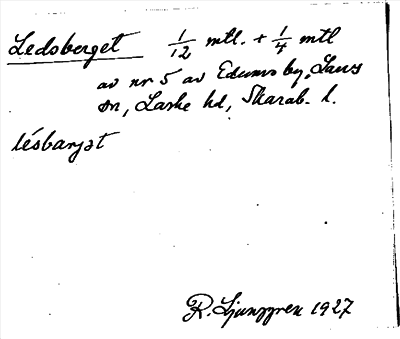 Ledsberget 1/12 mtl. + 1/4 mtl
av nr 5 av Edums by, Laus
sn, Laske hd, Skarab. l.
lésbarjət
R. Ljunggren 1927